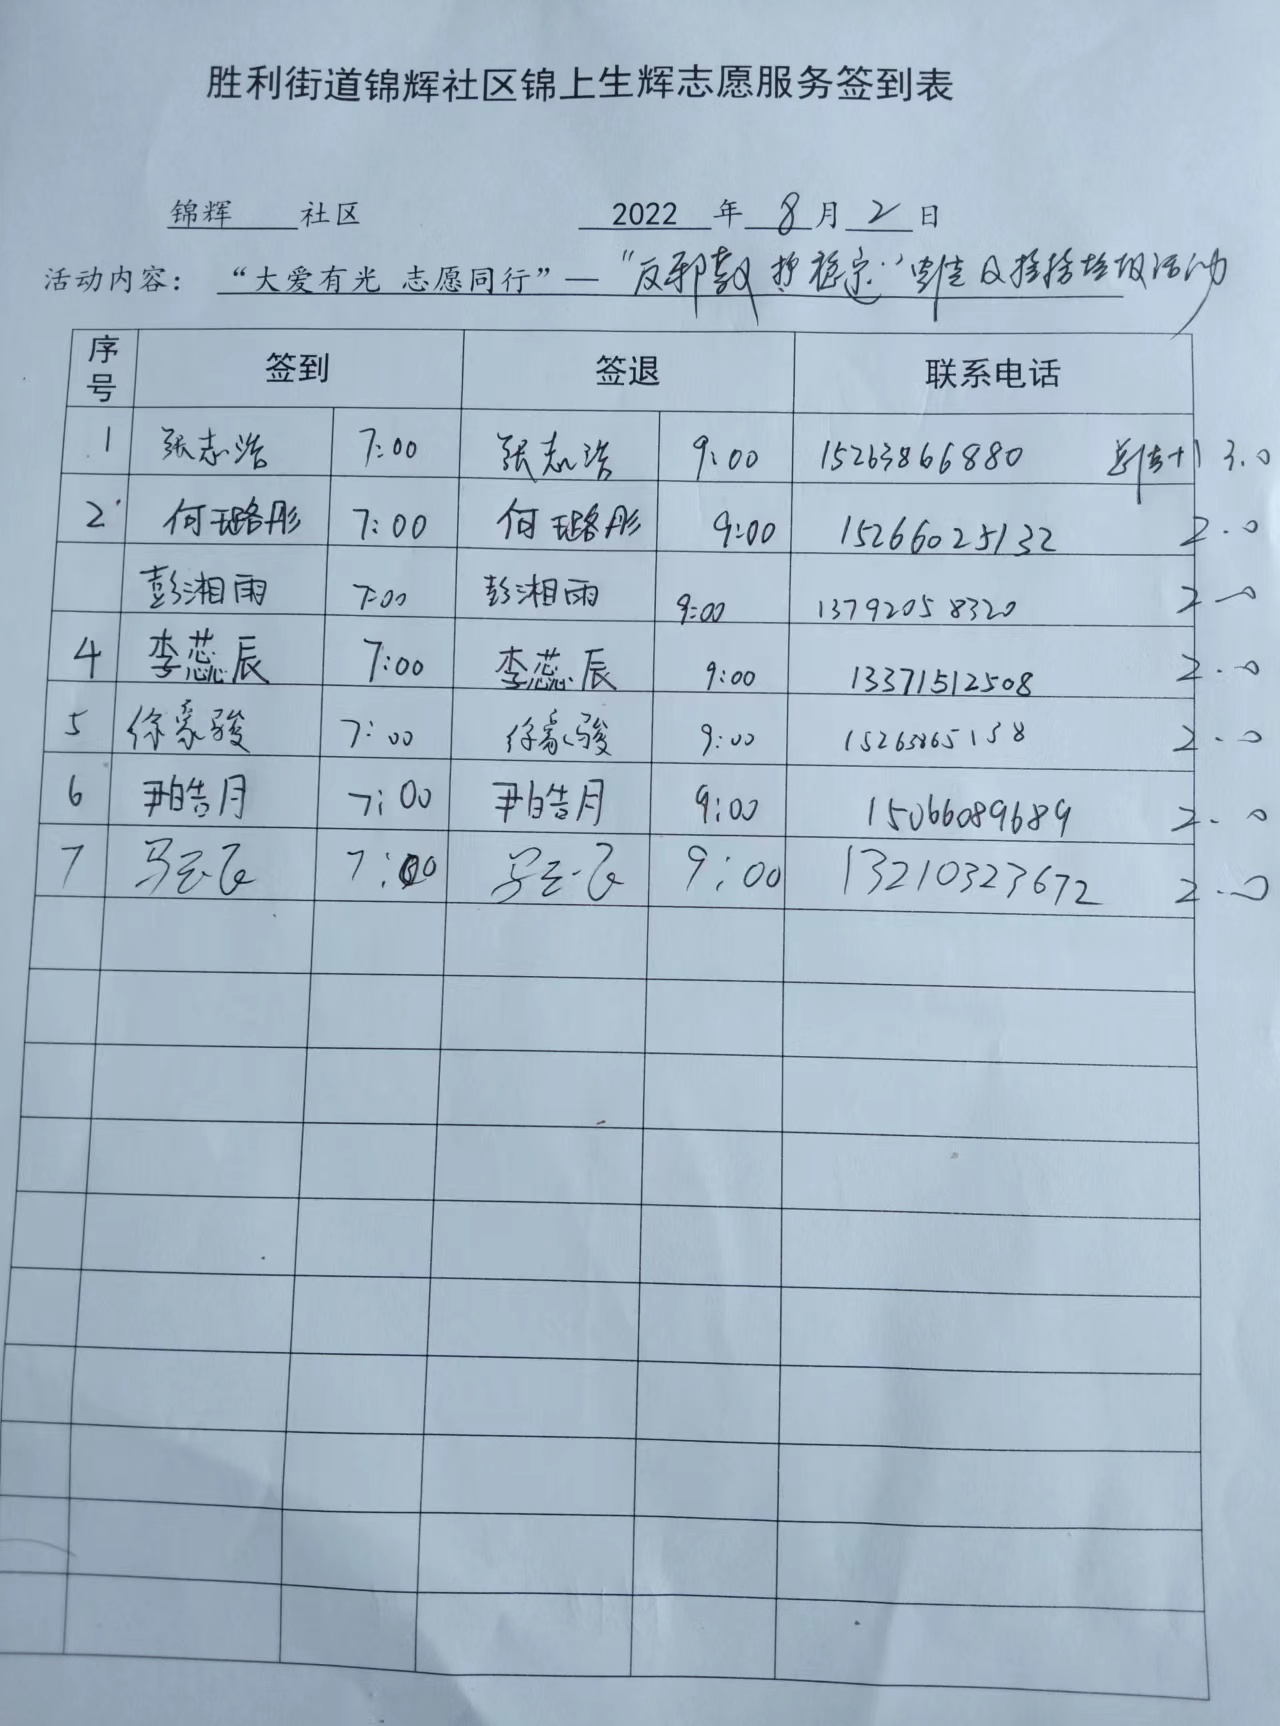 胜利街道锦辉社区锦上生辉志愿服务签到表
锦辉 社区 2022 年 8 月 2 日
活动内容： “大爱有光 志愿同行”—“反邪教 护稳定” 及捡拾垃圾活动
序号 签到 签退 联系电话
1 张志浩 7:00 张志浩 9:00 15263866880 3.0
2 何璐彤 7:00 何璐彤 9:00 15266025132 2.0
彭湘雨 7:00 彭湘雨 9:00 13792058320 2.0
4 李蕊辰 7:00 李蕊辰 9:00 13371512508 2.0
5 徐豪骏 7:00 徐豪骏 9:00 15263865158 2.0
6 尹皓月 7:00 尹皓月 9:00 15066089689 2.0
7 7:00 9:00 13210323672 2.0